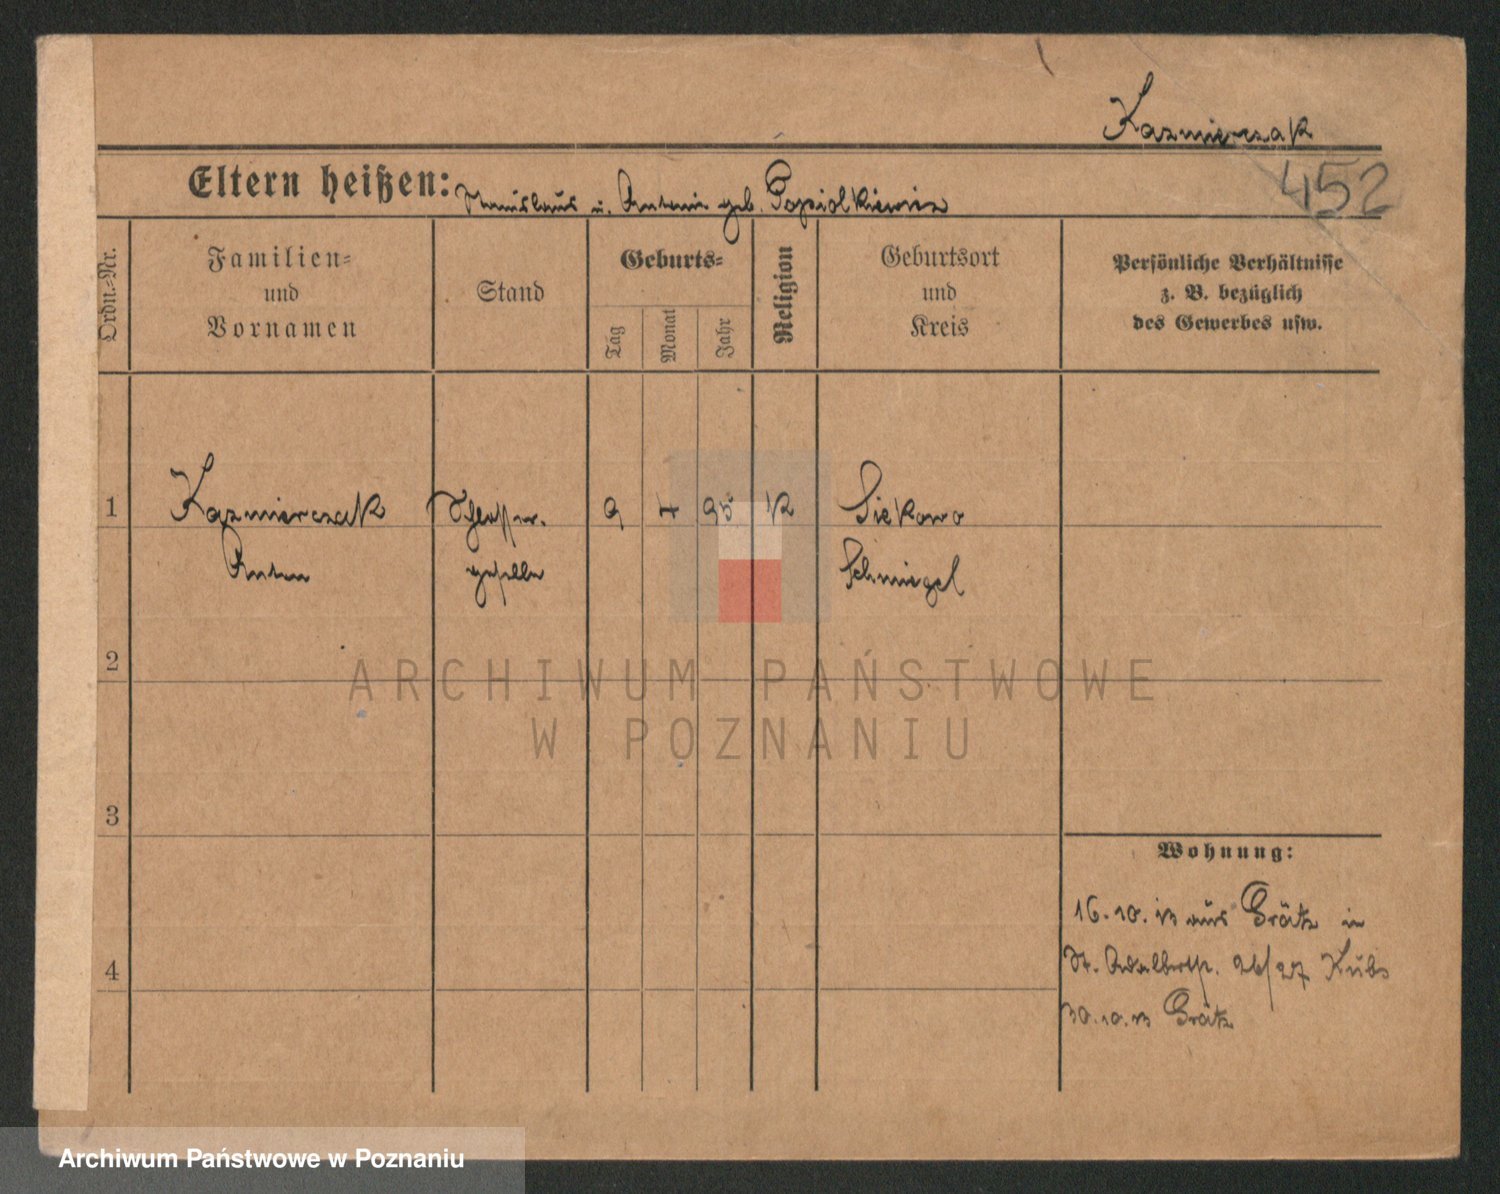 Kazmierczak
452
Eltern heißen: Stanislaus u. Antonie geb. Popiolkiewicz
Ordn.-Nr.
Familien-
und
Vornamen
Stand
Geburts-
Tag
Monat
Jahr
Religion
Geburtsort
und
Kreis
Persönliche Verhältnisse
z. B. bezüglich
des Gewerbes usw.
1 Kazmierczak Schlosser- 9 4 95 K Siekowo
Anton geselle Schmiegel
2
3
4
Wohnung:
16.10.13 aus Grätz in
St. Adalbertstr. 26/27 Kubs
30.10.13 Grätz
ARCHIWUM PAŃSTWOWE
W POZNANIU
Archiwum Państwowe w Poznaniu